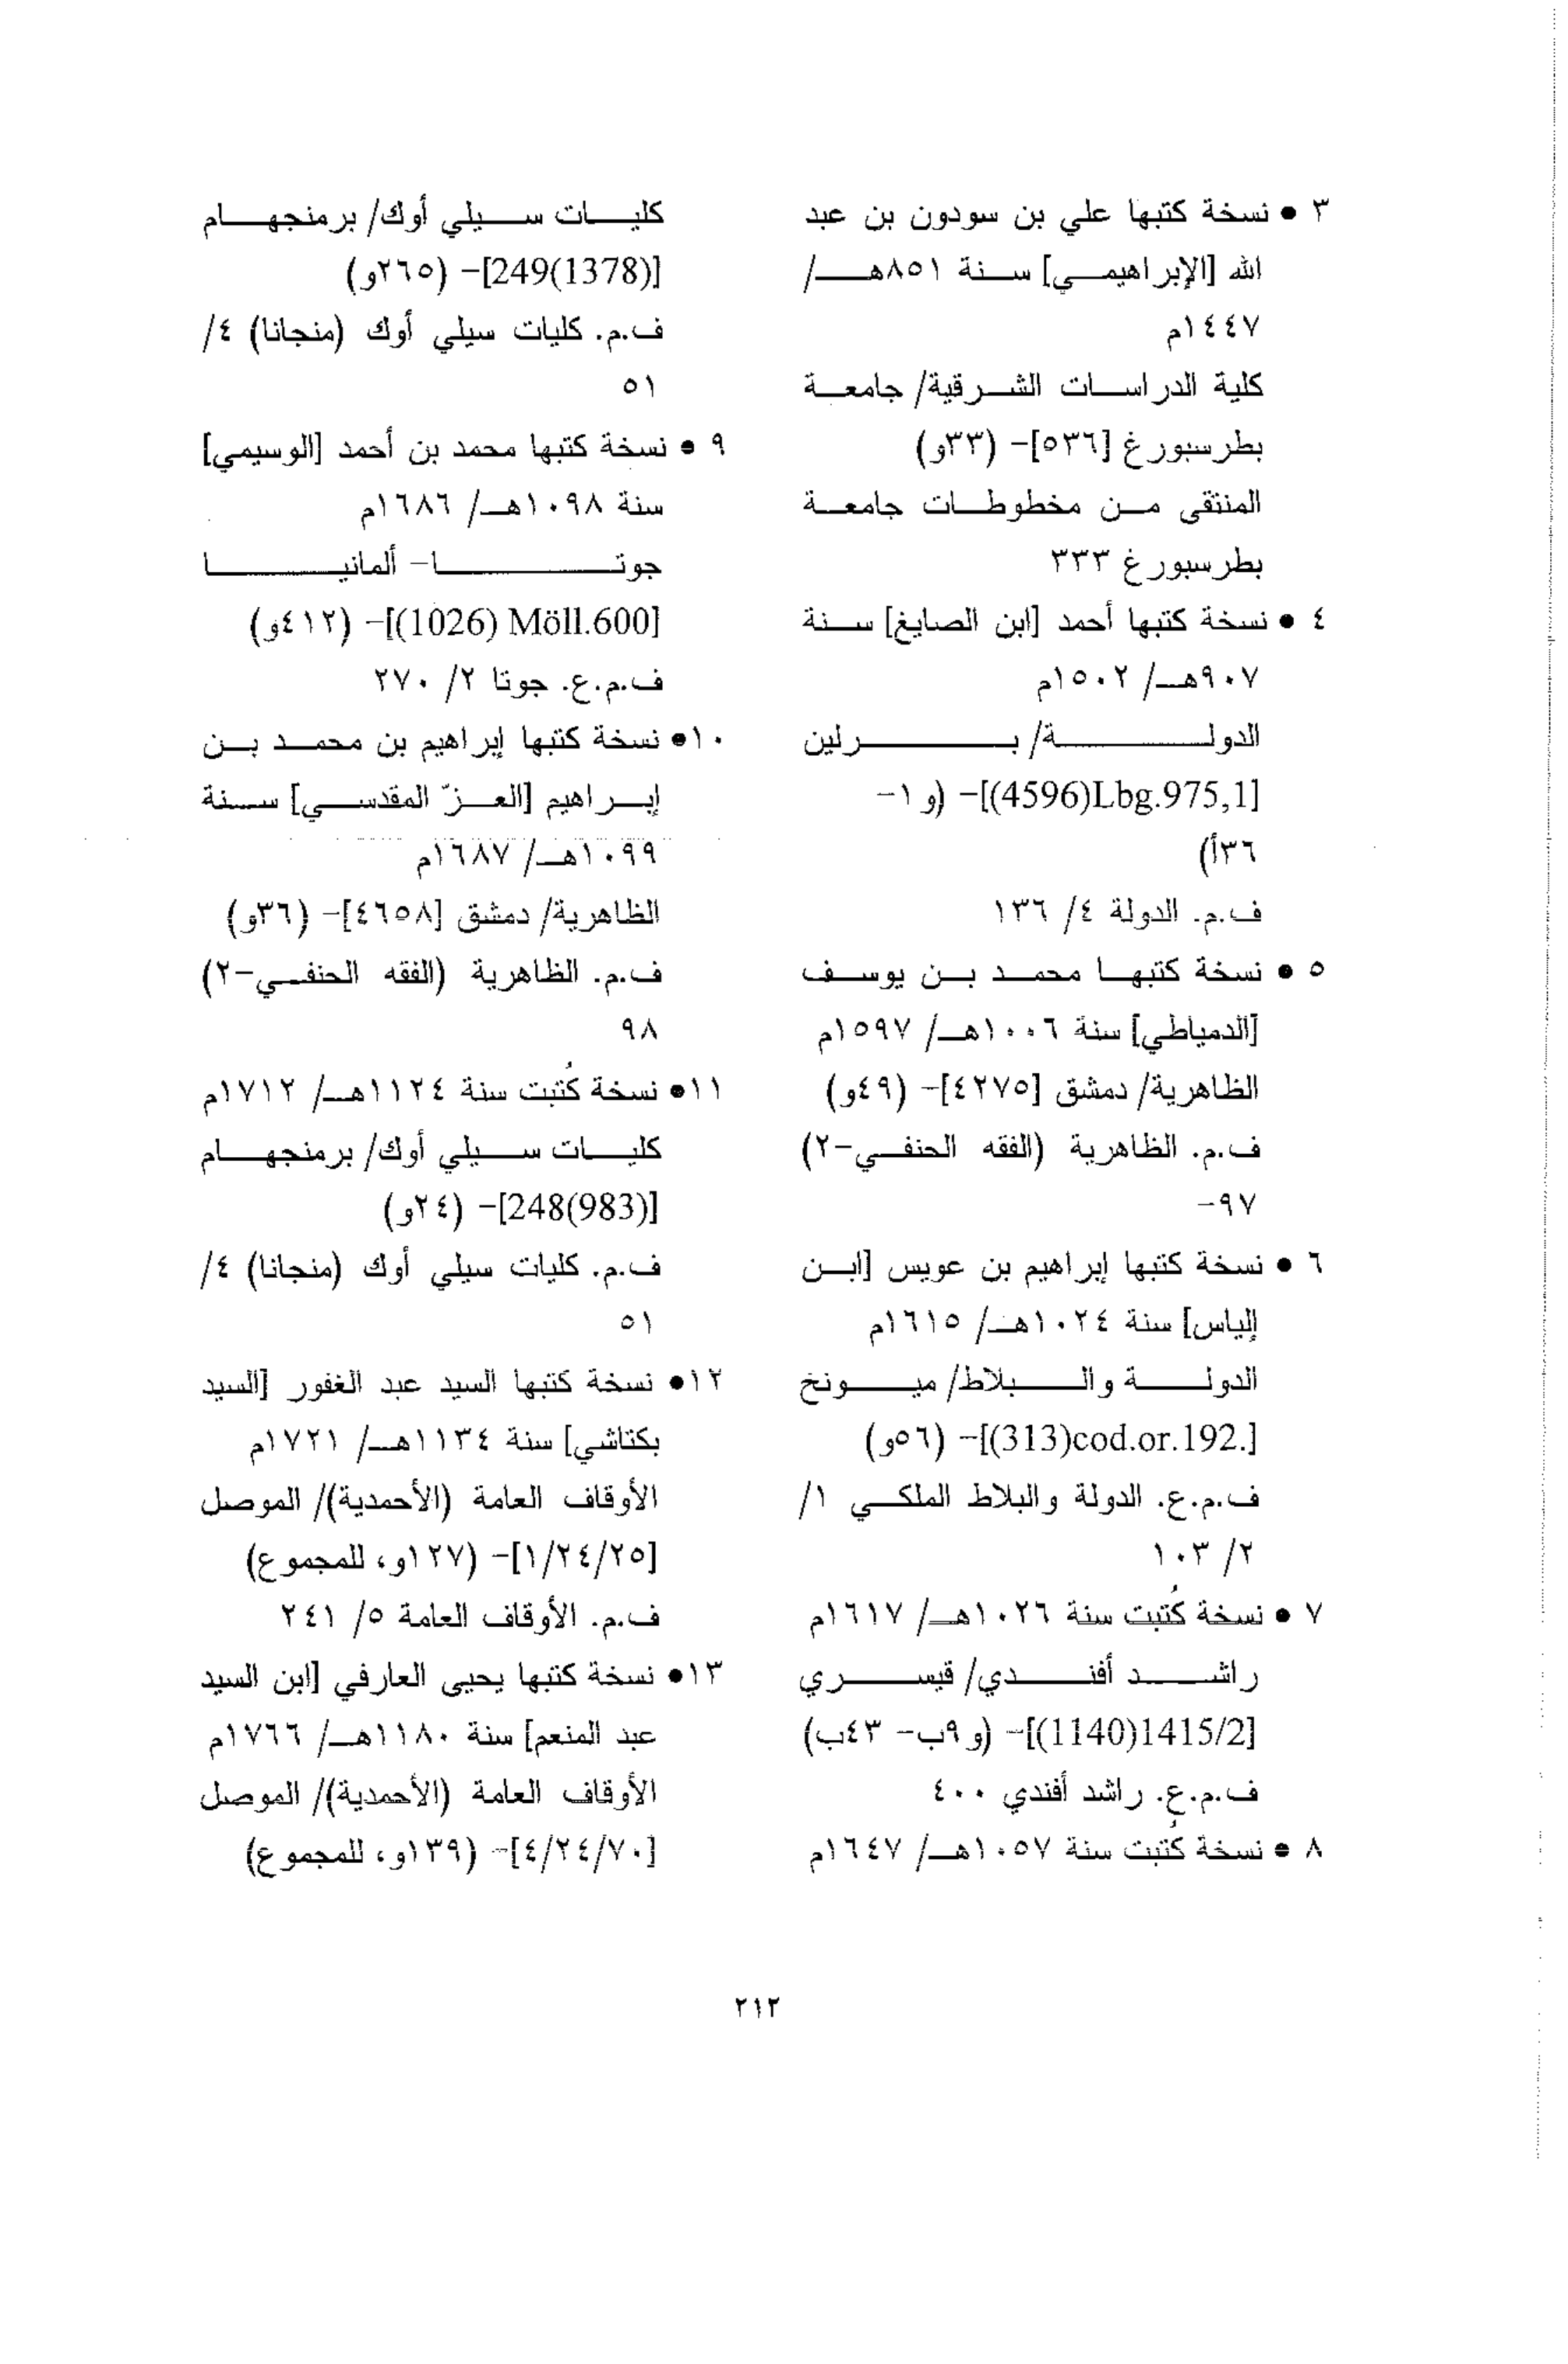 ٣ • نسخة كتبها علي بن سودون بن عبد
الله [الإبراهيمي] سنة ٨٥١هـ/
١٤٤٧م
كلية الدراسات الشرقية/ جامعة
بطرسبورغ [٥٣٦]- (٣٣و)
المنتقى من مخطوطات جامعة
بطرسبورغ ٣٣٣
٤ • نسخة كتبها أحمد [ابن الصايغ] سنة
٩٠٧هـ/ ١٥٠٢م
الدولة/ برلين
[4596)Lbg.975,1)]- (و ١-
٣٦أ)
ف.م. الدولة ٤/ ١٣٦
٥ • نسخة كتبها محمد بن يوسف
[الدمياطي] سنة ١٠٠٦هـ/ ١٥٩٧م
الظاهرية/ دمشق [٤٢٧٥]- (٤٩و)
ف.م. الظاهرية (الفقه الحنفي-٢)
٩٧-
٦ • نسخة كتبها إبراهيم بن عويس [ابن
إلياس] سنة ١٠٢٤هـ/ ١٦١٥م
الدولة والبلاط/ ميونخ
[.313)cod.or.192)]- (٥٦و)
ف.م.ع. الدولة والبلاط الملكي ١/
٢/ ١٠٣
٧ • نسخة كُتبت سنة ١٠٢٦هـ/ ١٦١٧م
راشد أفندي/ قيسري
[1140)1415/2)]- (و٩ب- ٤٣ب)
ف.م.ع. راشد أفندي ٤٠٠
٨ • نسخة كُتبت سنة ١٠٥٧هـ/ ١٦٤٧م
كليات سيلي أوك/ برمنجهام
[249(1378)]- (٢٦٥و)
ف.م. كليات سيلي أوك (منجانا) ٤/
٥١
٩ • نسخة كتبها محمد بن أحمد [الوسيمي]
سنة ١٠٩٨هـ/ ١٦٨٦م
جوتا- ألمانيا
[(1026) Möll.600]- (٤١٢و)
ف.م.ع. جوتا ٢/ ٢٧٠
١٠• نسخة كتبها إبراهيم بن محمد بن
إبراهيم [العزّ المقدسي] سنة
١٠٩٩هـ/ ١٦٨٧م
الظاهرية/ دمشق [٤٦٥٨]- (٣٦و)
ف.م. الظاهرية (الفقه الحنفي-٢)
٩٨
١١• نسخة كُتبت سنة ١١٢٤هـ/ ١٧١٢م
كليات سيلي أوك/ برمنجهام
[248(983)]- (٢٤و)
ف.م. كليات سيلي أوك (منجانا) ٤/
٥١
١٢• نسخة كتبها السيد عبد الغفور [السيد
بكتاشي] سنة ١١٣٤هـ/ ١٧٢١م
الأوقاف العامة (الأحمدية)/ الموصل
[١/٢٤/٢٥]- (١٢٧و، للمجموع)
ف.م. الأوقاف العامة ٥/ ٢٤١
١٣• نسخة كتبها يحيى العارفي [ابن السيد
عبد المنعم] سنة ١١٨٠هـ/ ١٧٦٦م
الأوقاف العامة (الأحمدية)/ الموصل
[٤/٢٤/٧٠]- (١٣٩و، للمجموع)
٢١٢